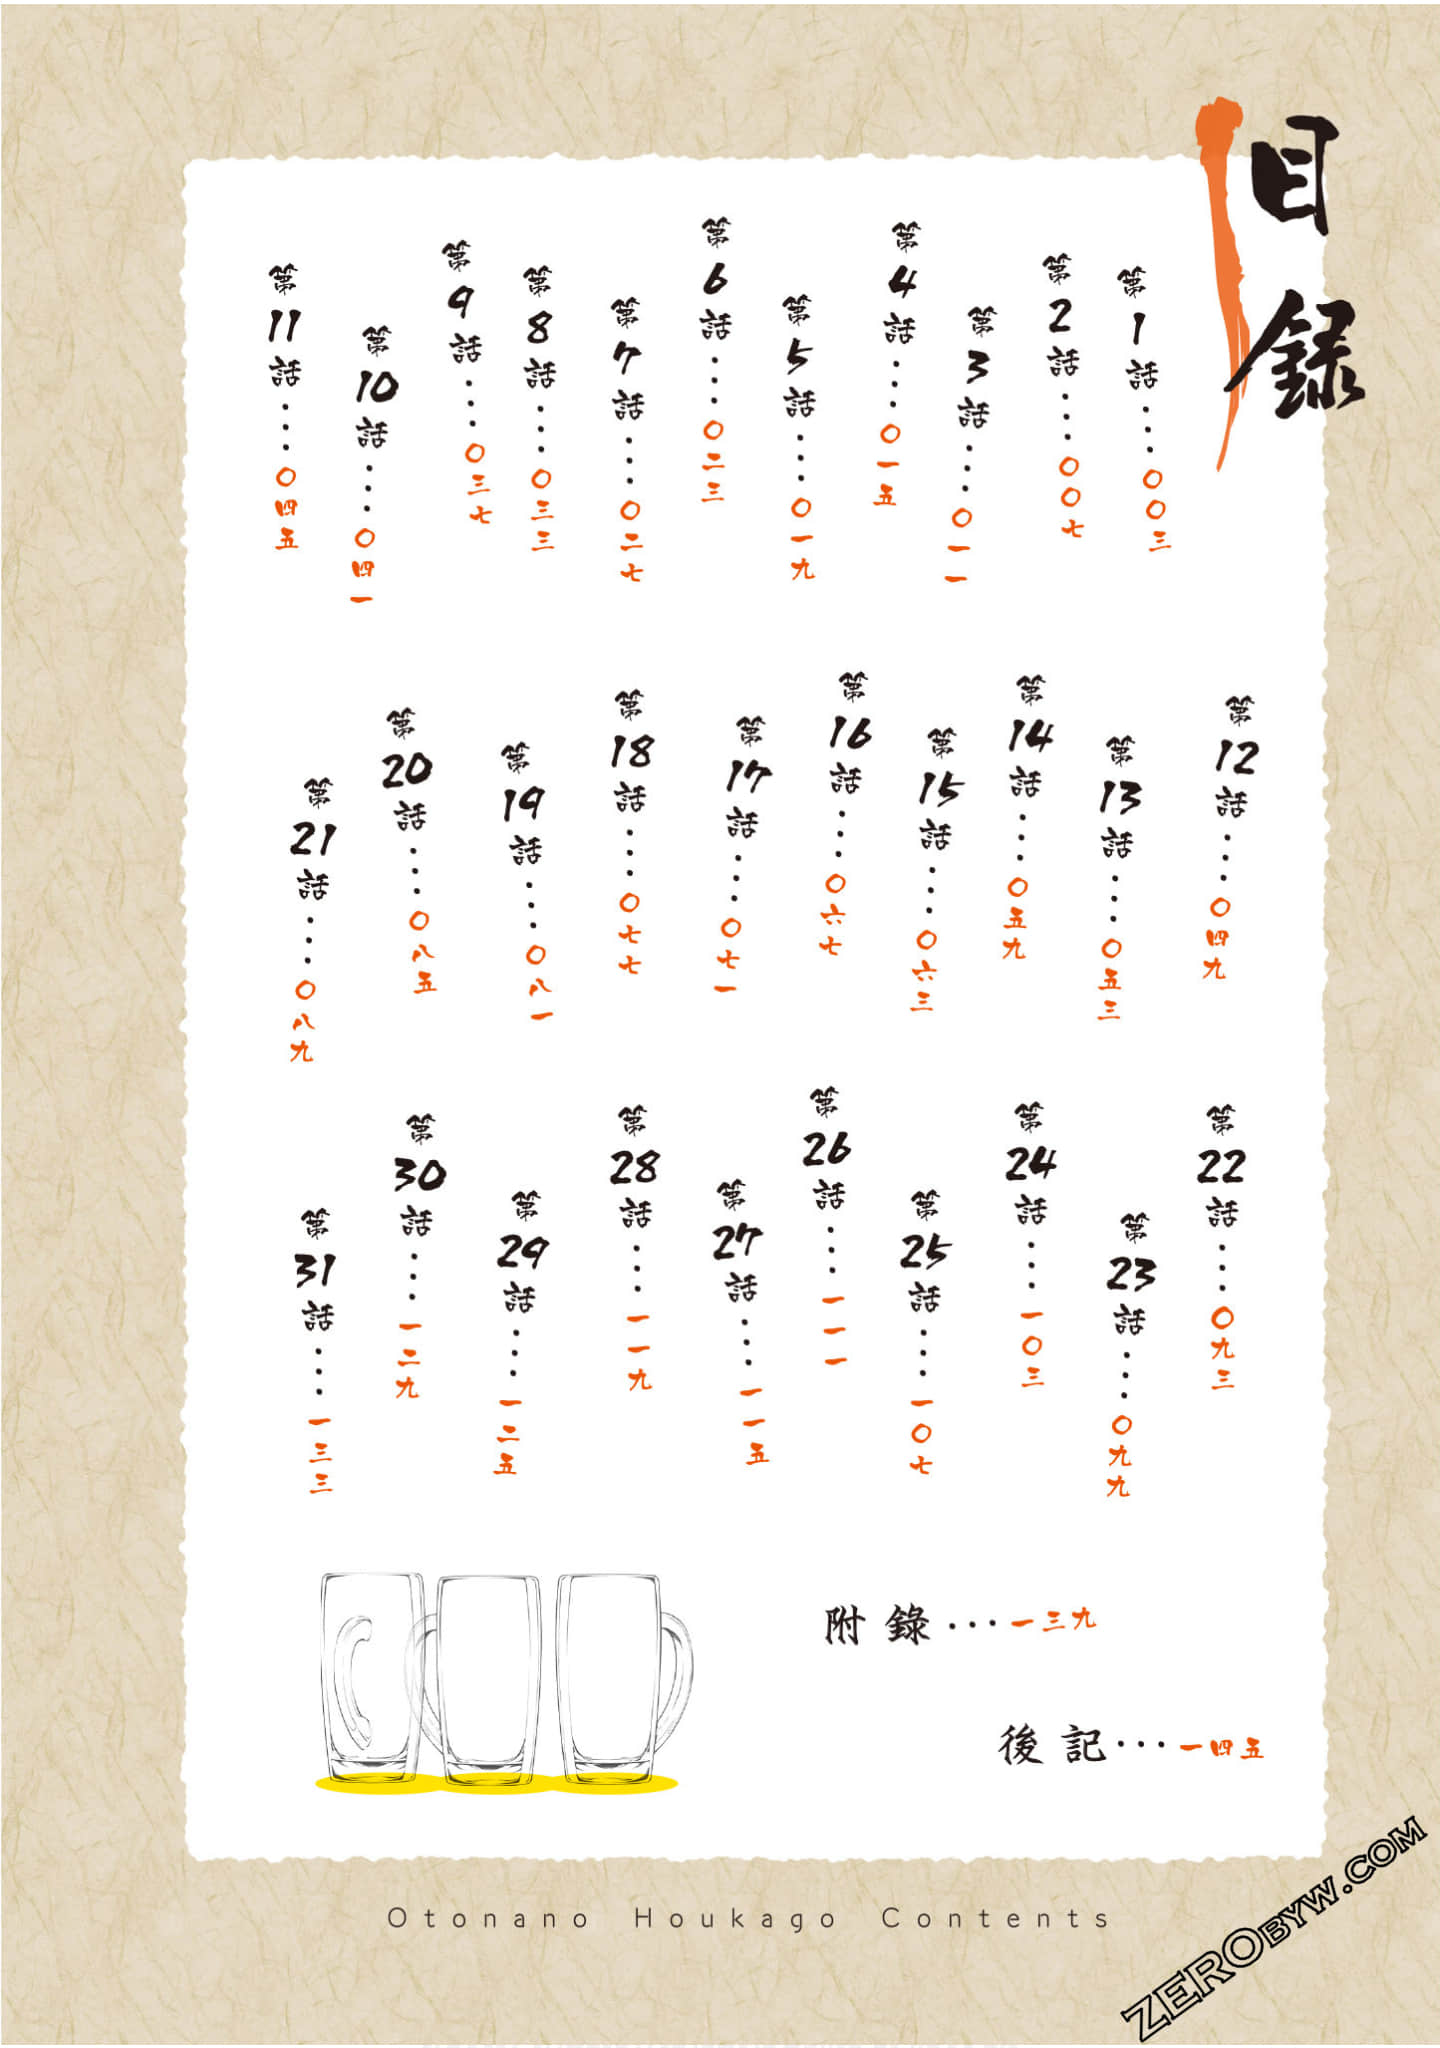 目錄
第1話····〇〇三
第2話····〇〇七
第3話····〇一一
第4話····〇一五
第5話····〇一九
第6話····〇二三
第7話····〇二七
第8話····〇三三
第9話····〇三七
第10話····〇四一
第11話····〇四五
第12話····〇四九
第13話····〇五三
第14話····〇五九
第15話····〇六三
第16話····〇六七
第17話····〇七一
第18話····〇七七
第19話····〇八一
第20話····〇八五
第21話····〇八九
第22話····〇九三
第23話····〇九九
第24話····一〇三
第25話····一〇七
第26話····一一一
第27話····一一五
第28話····一一九
第29話····一二五
第30話····一二九
第31話····一三三
附錄···一三九
後記···一四五
Otonano Houkago Contents
ZEROBYW.COM